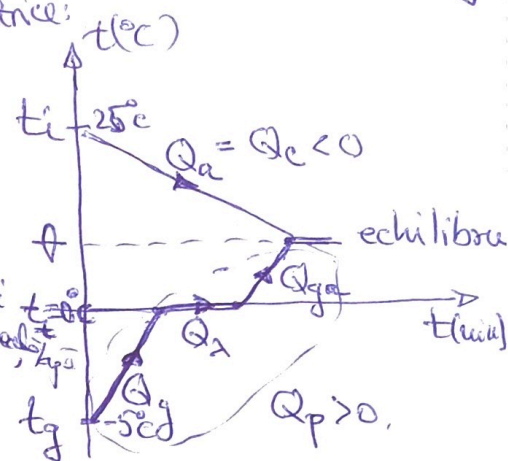 trice:
t(°C)
ti 25°C
Qa = Qc < 0
θ echilibru
Qga
t=0°C
t(min)
Qλ
Qg
tg -5°C
Qp > 0.